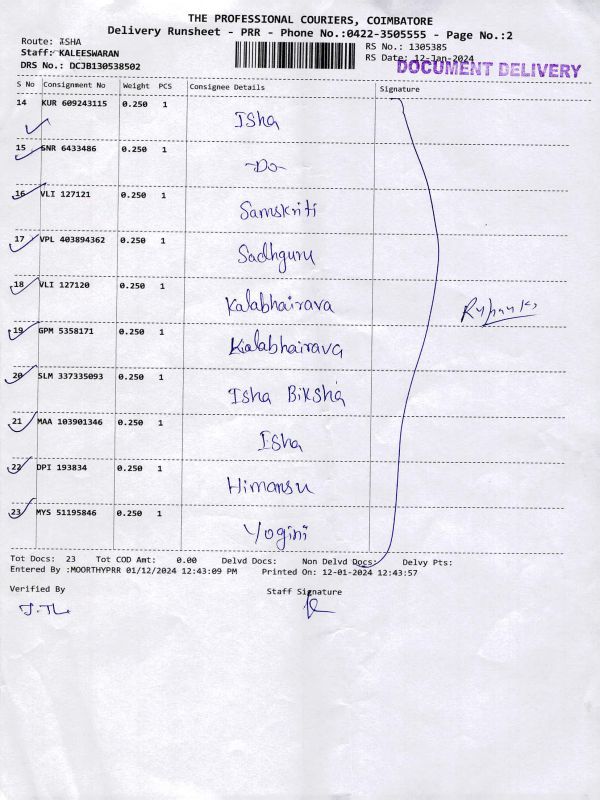 THE PROFESSIONAL COURIERS, COIMBATORE
Delivery Runsheet - PRR - Phone No.:0422-3505555 - Page No.:2
Route: ISHA
Staff: KALEESWARAN
DRS No.: DCJB130538502
RS No.: 1305385
RS Date: 12-Jan-2024
DOCUMENT DELIVERY
S No Consignment No Weight PCS Consignee Details Signature
14 KUR 609243115 0.250 1 Isha
15 GNR 6433486 0.250 1 -Do-
16 VLI 127121 0.250 1 Samskriti
17 VPL 403894362 0.250 1 Sadhguru
18 VLI 127120 0.250 1 Kalabhairava
19 GPM 5358171 0.250 1 Kalabhairava
20 SLM 337335093 0.250 1 Isha Biksha
21 MAA 103901346 0.250 1 Isha
22 DPI 193834 0.250 1 Himansu
23 MYS 51195846 0.250 1 Yogini
Tot Docs: 23 Tot COD Amt: 0.00 Delvd Docs: Non Delvd Docs: Delvy Pts:
Entered By :MOORTHYPRR 01/12/2024 12:43:09 PM Printed On: 12-01-2024 12:43:57
Verified By Staff Signature